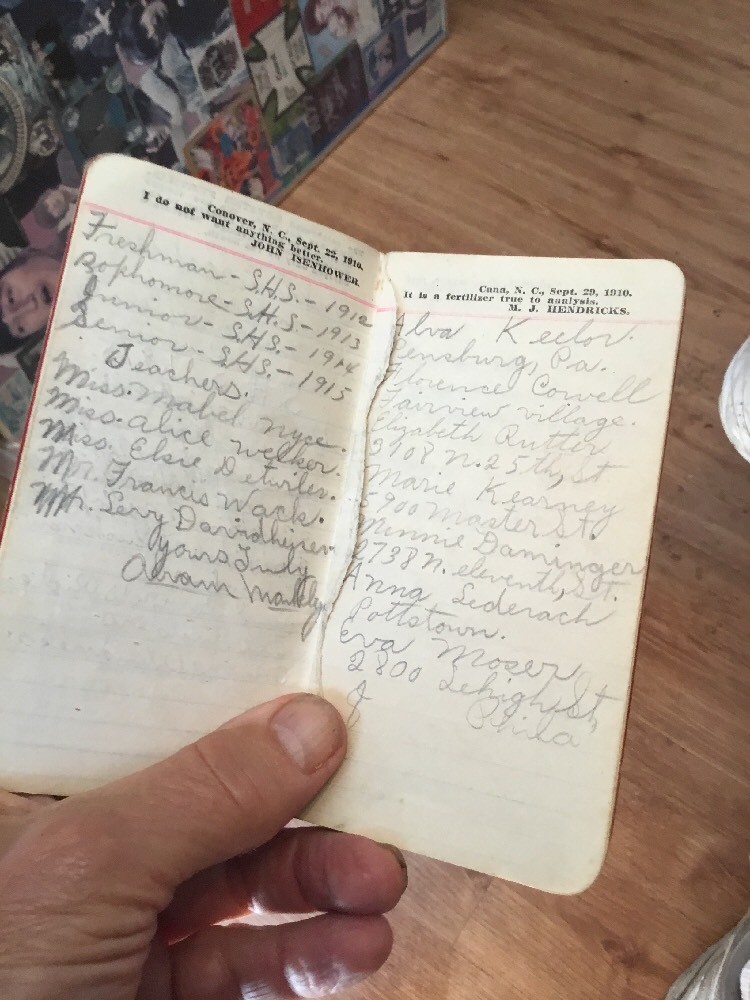 Conover, N. C., Sept. 22, 1910.
I do not want anything better.
JOHN ISENHOWER.
Freshman - S.H.S. - 1912
Sophomore - S.H.S. - 1913
Junior - S.H.S. - 1914
Senior - S.H.S. - 1915
Teachers.
Miss. Mabel Nyce.
Miss. Alice Welker.
Miss. Elsie Detwiler.
Mr. Francis Wack.
Mr. Levy
Yours Truly
Cuna, N. C., Sept. 29, 1910.
It is a fertilizer true to analysis.
M. J. HENDRICKS.
Alva Keelor.
Pensburg, Pa.
Florence Cowell
Fairview village.
Elizabeth Rutter
3108 N. 25th, St
Marie Kearney
5900 Master St.
Minnie Daminger
2738 N. eleventh, St.
Anna Lederach
Pottstown.
Eva Moser
2800 Lehigh, St
Phila